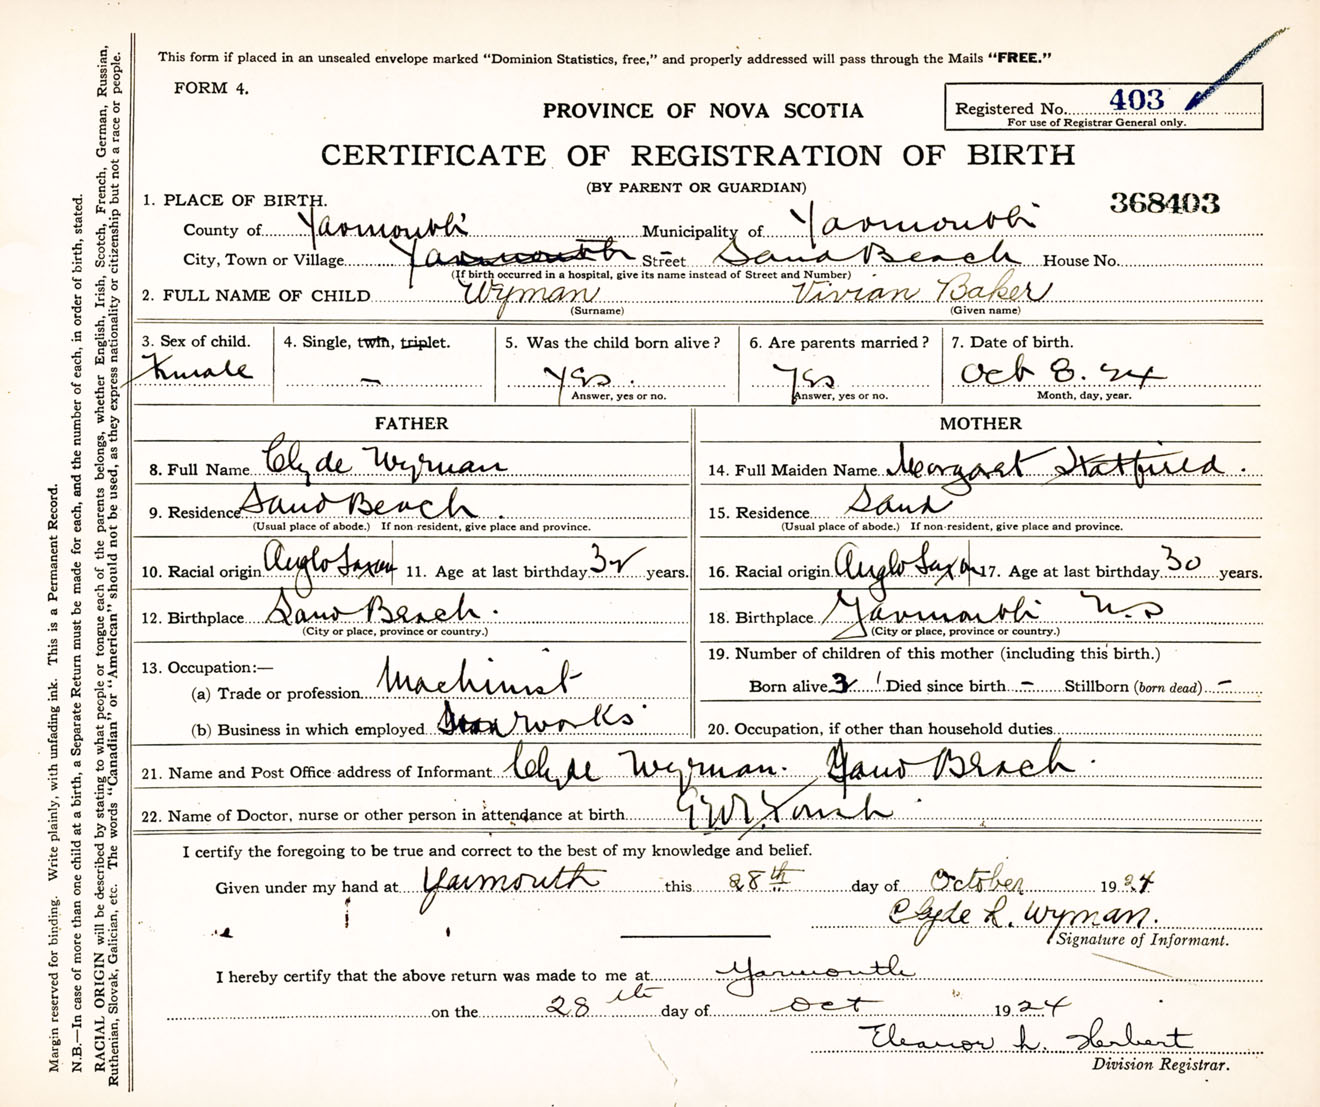 This form if placed in an unsealed envelope marked "Dominion Statistics, free," and properly addressed will pass through the Mails "FREE."
FORM 4.
PROVINCE OF NOVA SCOTIA
Registered No. 403
For use of Registrar General only.
CERTIFICATE OF REGISTRATION OF BIRTH
(BY PARENT OR GUARDIAN)
368403
1. PLACE OF BIRTH.
County of Yarmouth Municipality of Yarmouth
City, Town or Village Yarmouth Street Sand Beach House No.
(If birth occurred in a hospital, give its name instead of Street and Number)
2. FULL NAME OF CHILD Wyman Vivian Baker
(Surname) (Given name)
3. Sex of child. 4. Single, twin, triplet. 5. Was the child born alive? 6. Are parents married? 7. Date of birth.
Female – Yes. Yes Oct 8. 24
Answer, yes or no. Answer, yes or no. Month, day, year.
FATHER MOTHER
8. Full Name Clyde Wyman 14. Full Maiden Name Margaret Hatfield.
9. Residence Sand Beach. 15. Residence Sand
(Usual place of abode.) If non resident, give place and province. (Usual place of abode.) If non-resident, give place and province.
10. Racial origin Anglo Saxon 11. Age at last birthday 32 years. 16. Racial origin Anglo Saxon 17. Age at last birthday 30 years.
12. Birthplace Sand Beach. 18. Birthplace Yarmouth N.S
(City or place, province or country.) (City or place, province or country.)
13. Occupation:— 19. Number of children of this mother (including this birth.)
(a) Trade or profession Machinist Born alive Died since birth – Stillborn (born dead) –
(b) Business in which employed works 20. Occupation, if other than household duties
21. Name and Post Office address of Informant Clyde Wyman. Sand Beach.
22. Name of Doctor, nurse or other person in attendance at birth
I certify the foregoing to be true and correct to the best of my knowledge and belief.
Given under my hand at Yarmouth this 28th day of October 1924
Clyde L. Wyman.
Signature of Informant.
I hereby certify that the above return was made to me at Yarmouth
on the 28th day of Oct 1924
Eleanor L. Herbert
Division Registrar.
Margin reserved for binding. Write plainly, with unfading ink. This is a Permanent Record.
N.B.—In case of more than one child at a birth, a Separate Return must be made for each, and the number of each, in order of birth, stated.
RACIAL ORIGIN will be described by stating to what people or tongue each of the parents belongs, whether English, Irish, Scotch, French, German, Russian,
Ruthenian, Slovak, Galician, etc. The words "Canadian" or "American" should not be used, as they express nationality or citizenship but not a race or people.